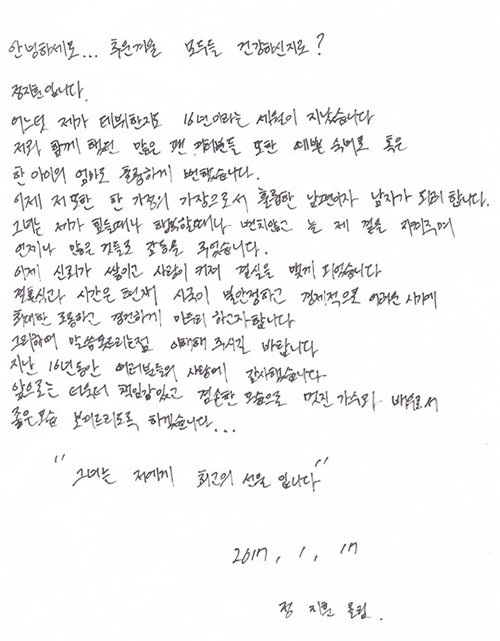 안녕하세요... 추운겨울 모두들 건강하신지요?
정지훈입니다.
어느덧 제가 데뷔한지도 16년이라는 세월이 지났습니다
저와 함께 했던 많은 팬 여러분들 또한 예쁜 숙녀로 혹은
한 아이의 엄마로 훌륭하게 변했습니다.
이제 저 또한 한 가정의 가장으로서 훌륭한 남편이자 남자가 되려 합니다.
그녀는 제가 힘들때나 행복할때나 변치않고 늘 제 곁을 지켜주며
언제나 많은 것들로 감동을 주었습니다.
이제 신뢰가 쌓이고 사랑이 커져 결실을 맺게 되었습니다
결혼식과 시간은 현재 시국이 불안정하고 경제적으로 어려운 시기에
최대한 조용하고 경건하게 마무리 하고자합니다
그리하여 말씀못드리는점 이해해 주시길 바랍니다
지난 16년동안 여러분들의 사랑에 감사했습니다
앞으로는 더욱더 책임감있고 겸손한 모습으로 멋진 가수와 배우로서
좋은모습 보여드리도록 하겠습니다...
"그녀는 저에게 최고의 선물 입니다"
2017, 1, 17
정 지훈 올림.